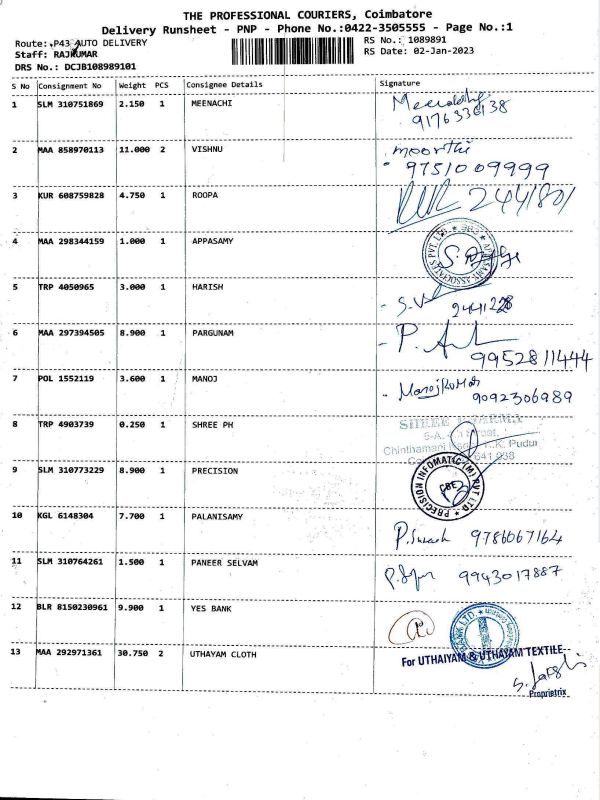 THE PROFESSIONAL COURIERS, Coimbatore
Delivery Runsheet - PNP - Phone No.:0422-3505555 - Page No.:1
Route: P43 AUTO DELIVERY
RS No.: 1089891
Staff: RAJKUMAR
RS Date: 02-Jan-2023
DRS No.: DCJB108989101
S No Consignment No Weight PCS Consignee Details Signature
1 SLM 310751869 2.150 1 MEENACHI
9176336138
2 MAA 858970113 11.000 2 VISHNU moorthi
9751009999
3 KUR 608759828 4.750 1 ROOPA 2441801
4 MAA 298344159 1.000 1 APPASAMY
5 TRP 4050965 3.000 1 HARISH S.V
2441228
6 MAA 297394505 8.900 1 PARGUNAM P.
9952811444
7 POL 1552119 3.600 1 MANOJ Manojkumar
9092306989
8 TRP 4903739 0.250 1 SHREE PH SHREE PHARMA
Chinthamani K.K. Pudur
641 038
9 SLM 310773229 8.900 1 PRECISION PRECISION INFOMATIC (M) PVT LTD
CBE
10 KGL 6148304 7.700 1 PALANISAMY
P. Suresh 9786067164
11 SLM 310764261 1.500 1 PANEER SELVAM
9943017887
12 BLR 8150230961 9.900 1 YES BANK
13 MAA 292971361 30.750 2 UTHAYAM CLOTH For UTHAIYAM & UTHAYAM TEXTILE
Proprietrix